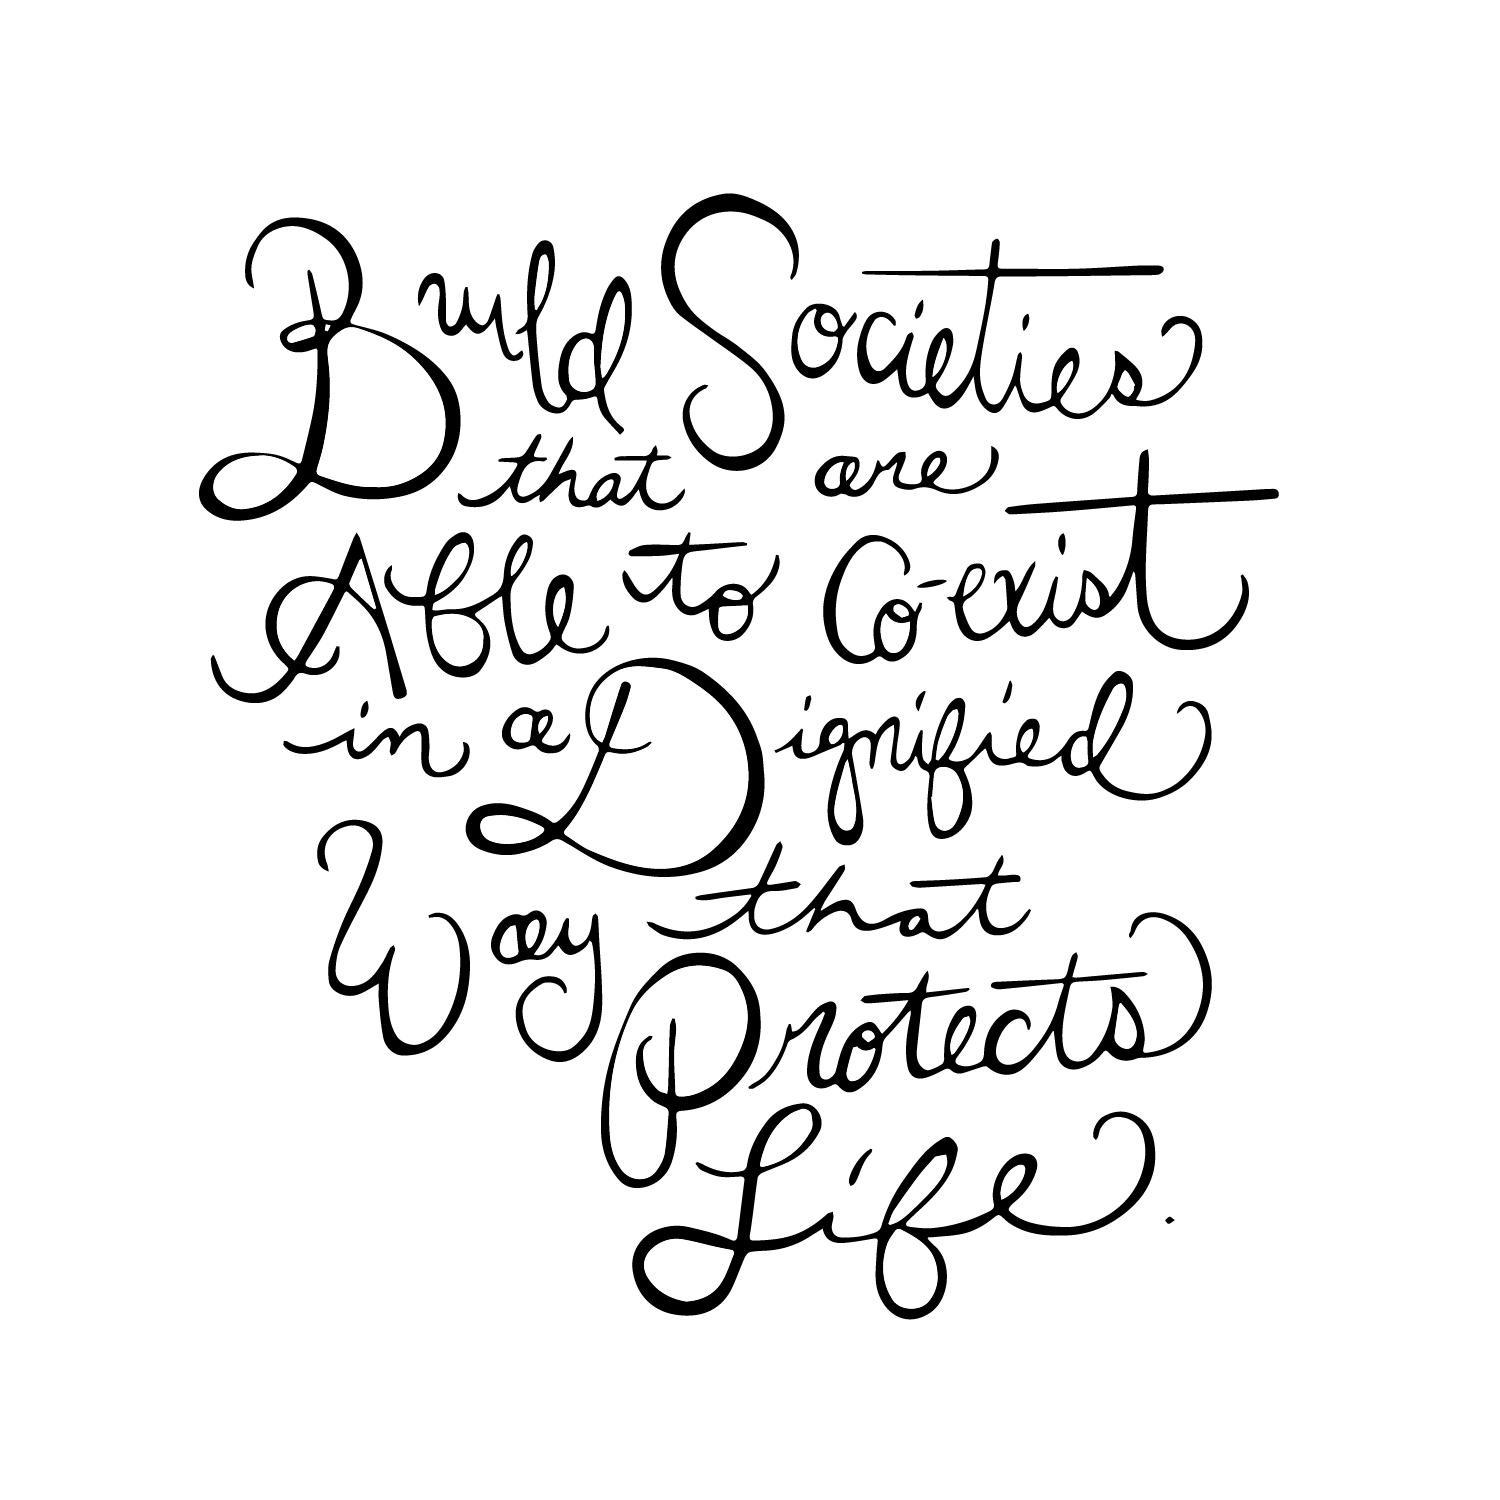 Build Societies
that are
Able to Co-exist
in a Dignified
Way that
Protects
Life.